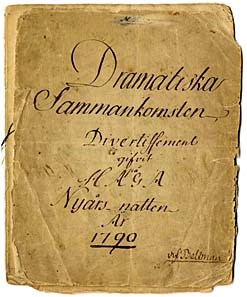 Dramatiska
Sammankomsten
Divertissement
gifvit
På HAGA
Nyårs natten
År
1790
af Bellman